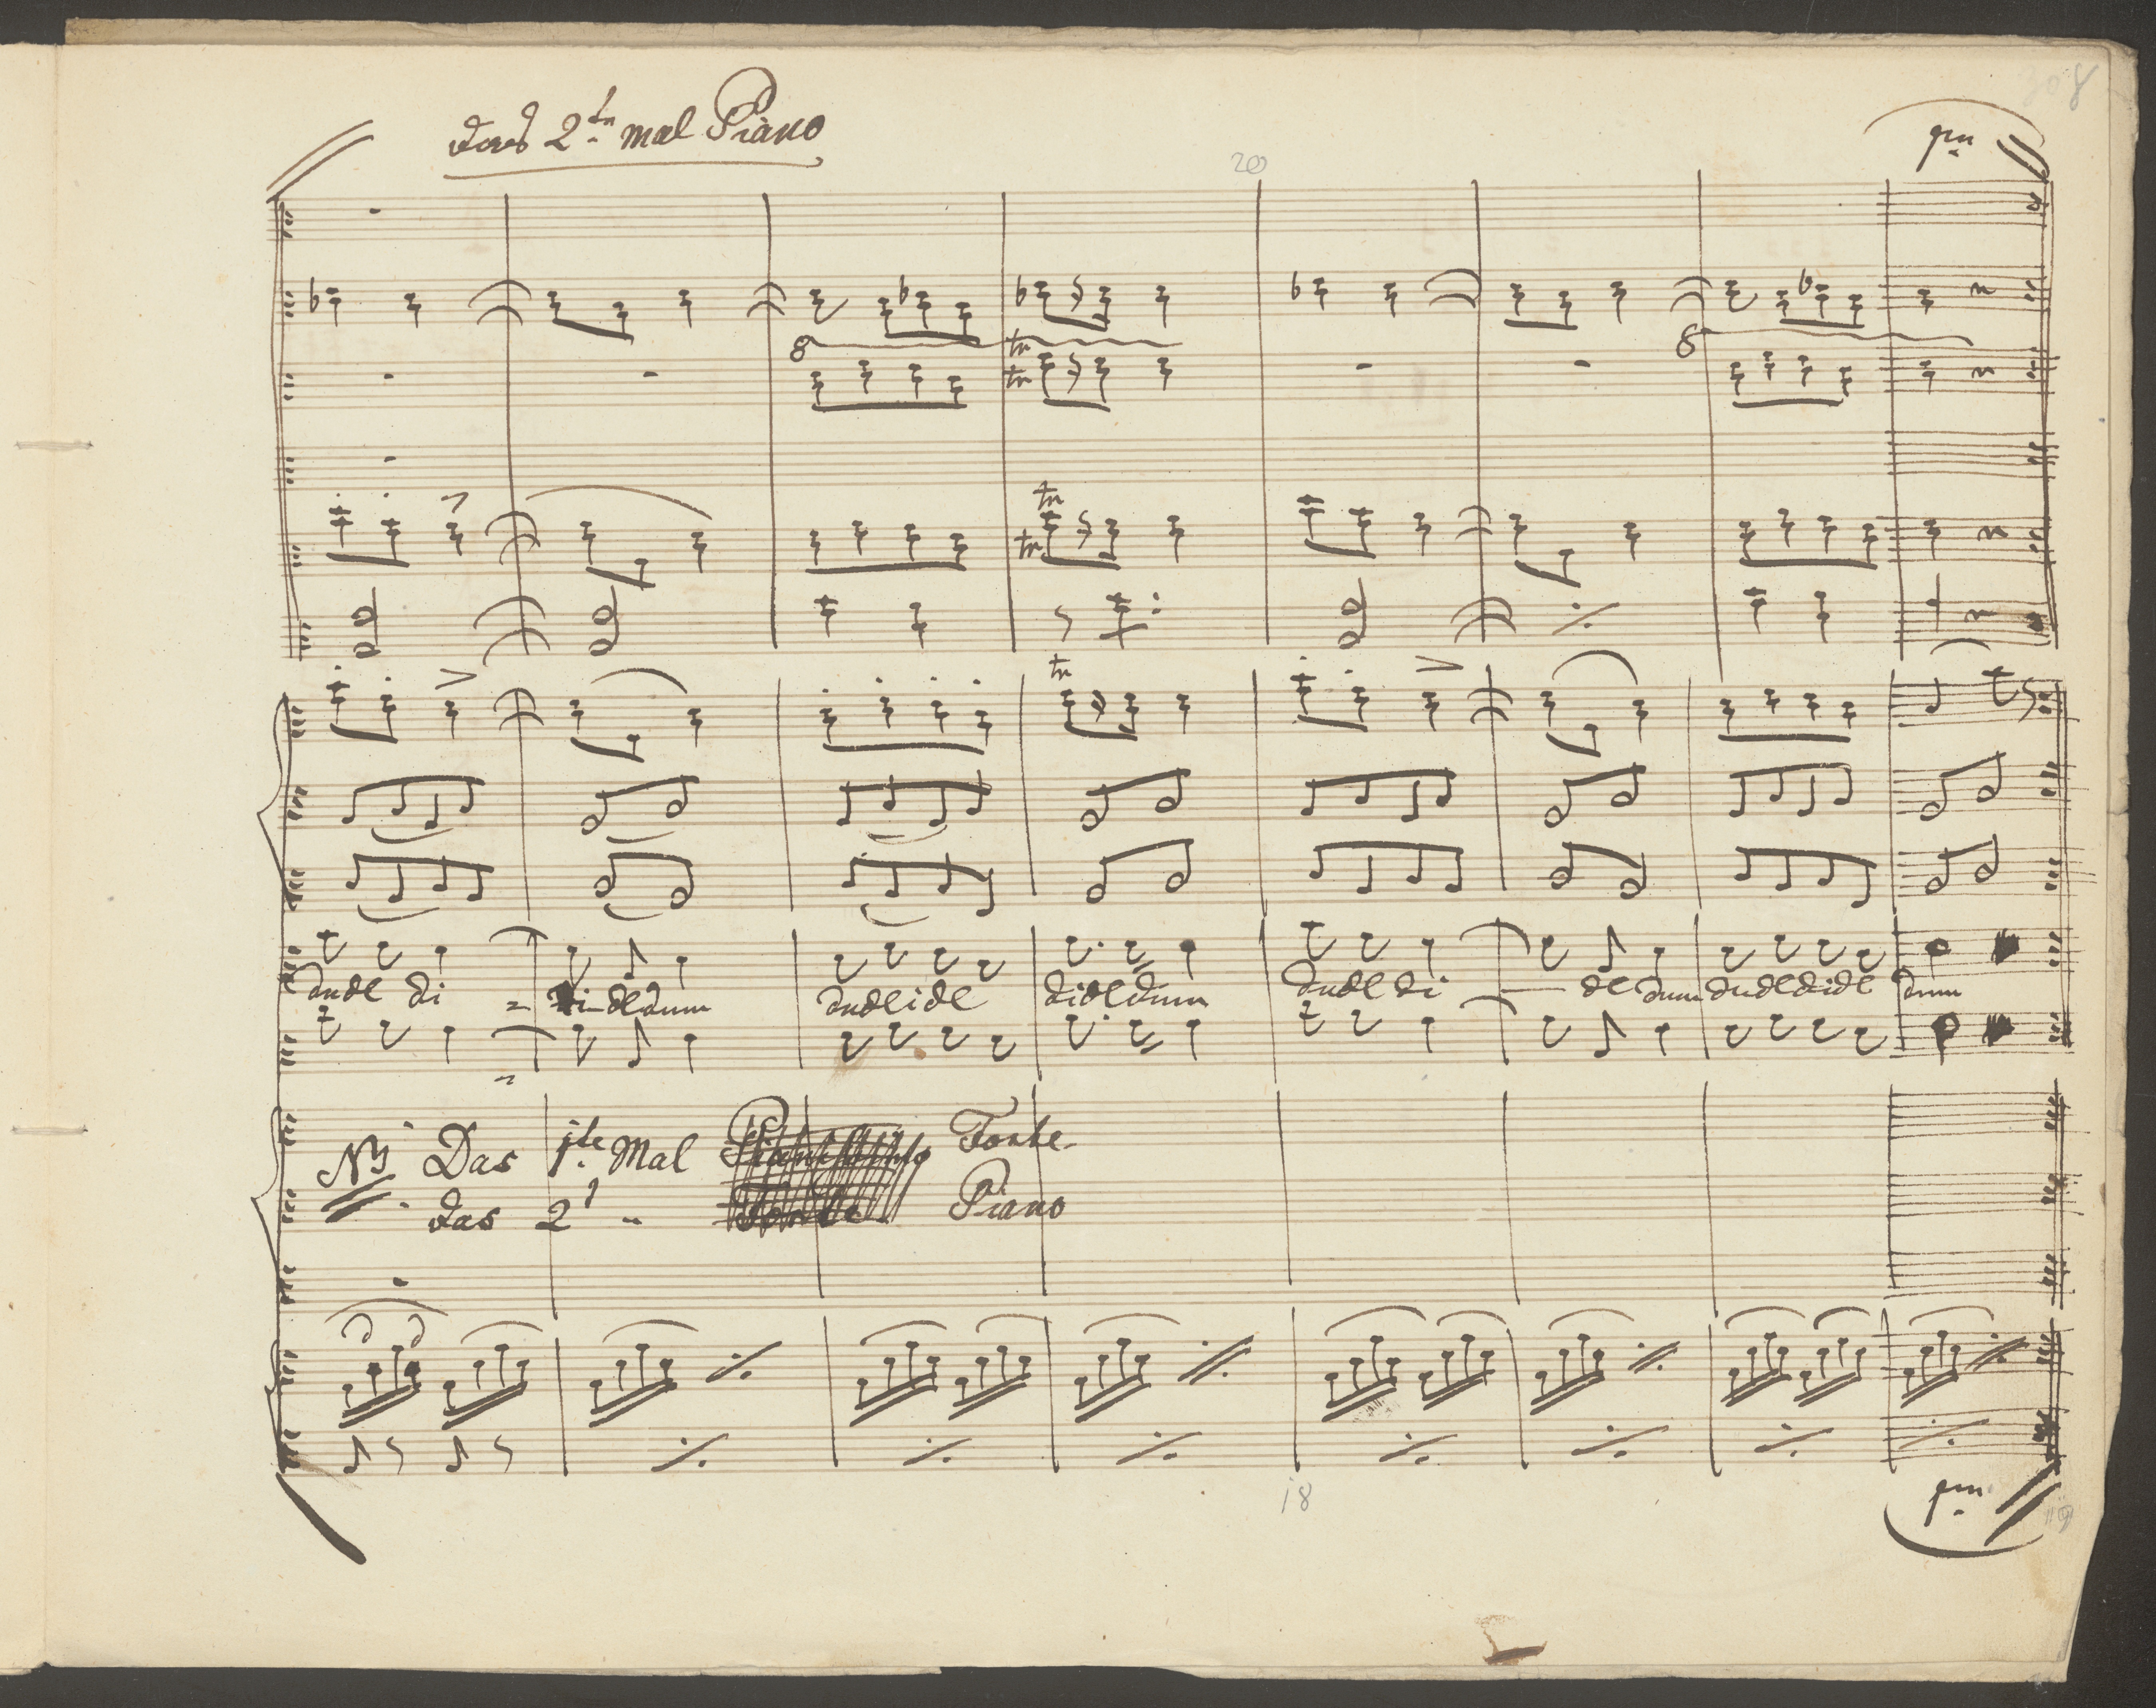 308
das 2ten mal Piano
1ma
20
8
tr
8
tr
tr
tr
tr
dudl di = di-dldum dudlidl didldum dudl di — dl dum dudldidl dum
NB. Das 1te Mal Forte
das 2t " Forte Piano
18
1ma